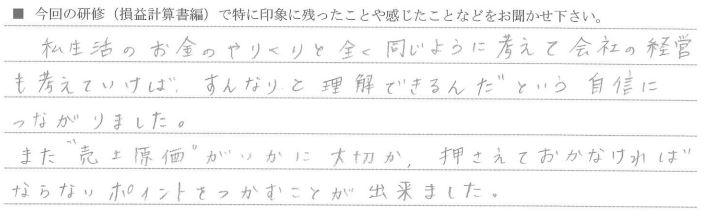 ■ 今回の研修（損益計算書編）で特に印象に残ったことや感じたことなどをお聞かせ下さい。
私生活のお金のやりくりと全く同じように考えて会社の経営
も考えていけば、すんなりと理解できるんだ"という自信に
つながりました。
また"売上原価"がいかに大切か、押さえておかなければ
ならないポイントをつかむことが出来ました。